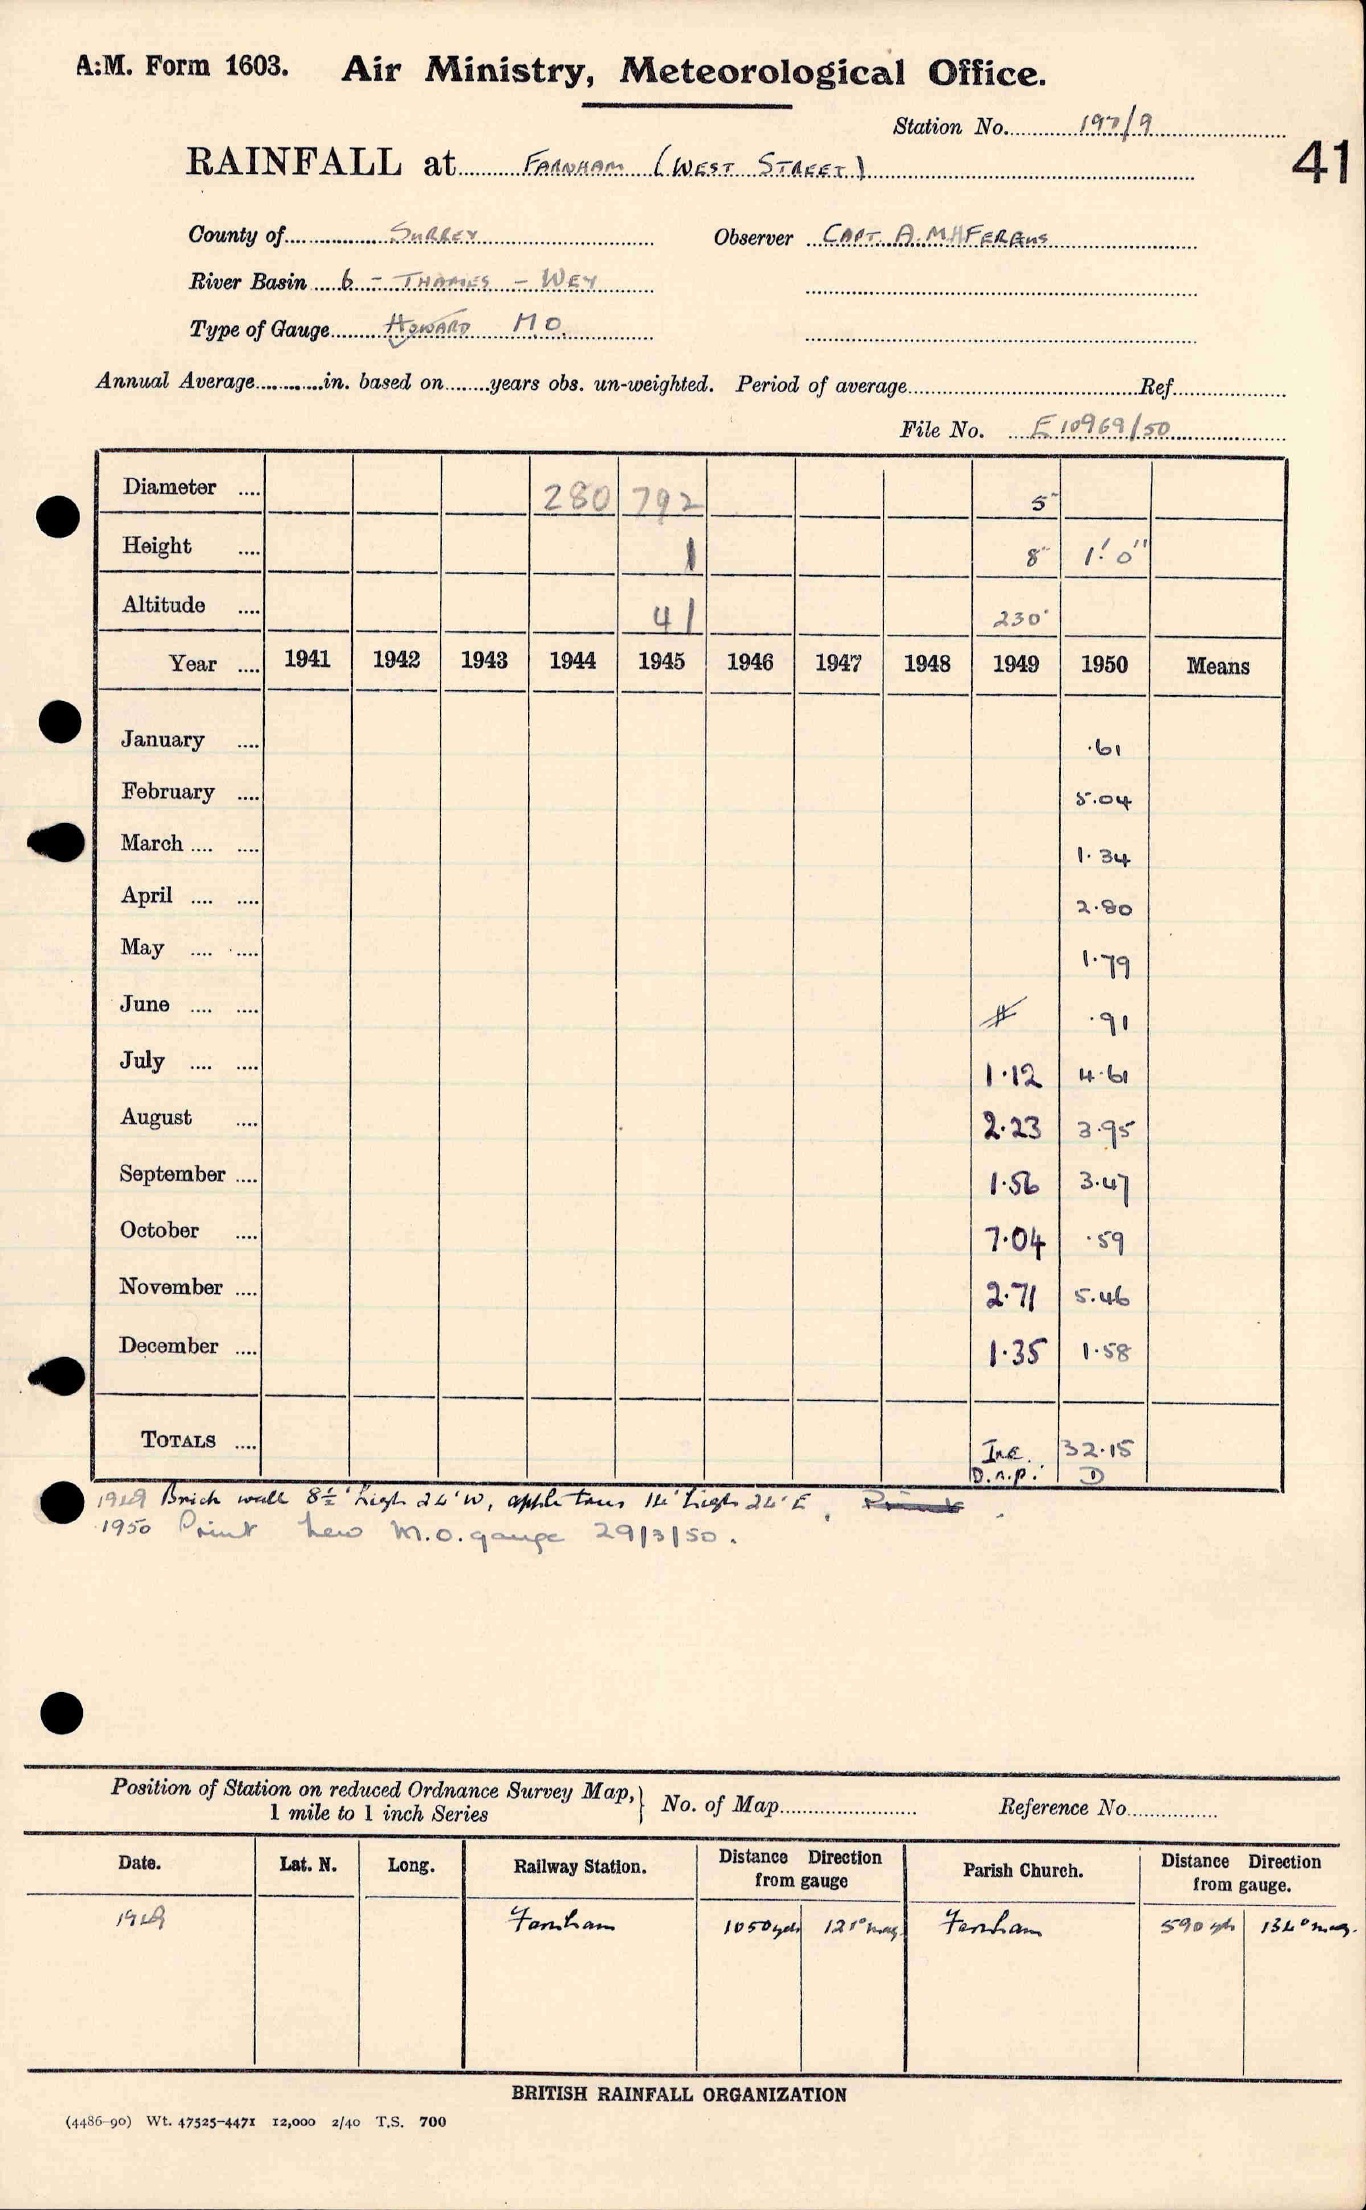 A.M. Form 1603. Air Ministry, Meteorological Office.
Station No. 197/9
41
RAINFALL at FARNHAM (WEST STREET)
County of SURREY Observer CAPT. A.M.H FERGUS
River Basin 6 - THAMES - WEY
Type of Gauge HOWARD M.O.
Annual Average in. based on years obs. un-weighted. Period of average Ref
File No. E10969/50
Diameter 280 792 5"
Height 1 8" 1' 0"
Altitude 41 230'
Year 1941 1942 1943 1944 1945 1946 1947 1948 1949 1950 Means
January .61
February 5.04
March 1.34
April 2.80
May 1.79
June .91
July 1.12 4.61
August 2.23 3.95
September 1.56 3.47
October 7.04 .59
November 2.71 5.46
December 1.35 1.58
TOTALS Inc. 32.15
D.n.p. D
1949 Brick wall 8½' high 24' W, apple trees 14' high 24' E,
1950 Print New M.O. gauge 29/3/50.
Position of Station on reduced Ordnance Survey Map,
1 mile to 1 inch Series
No. of Map Reference No.
Date. Lat. N. Long. Railway Station. Distance Direction from gauge Parish Church. Distance Direction from gauge.
1949 Farnham 1050 yds 121° mag. Farnham 590 yds 134° mag.
BRITISH RAINFALL ORGANIZATION
(4486-90) Wt. 47525-4471 12,000 2/40 T.S. 700